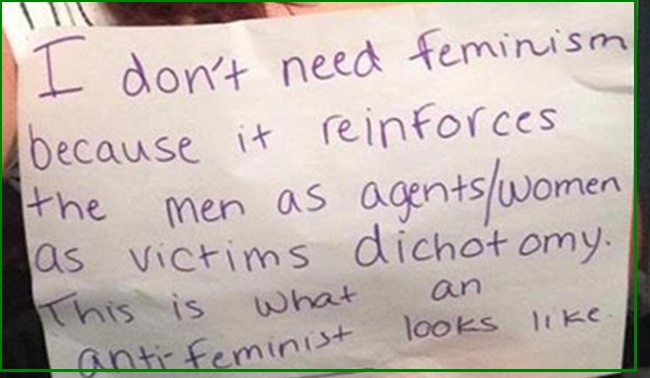 I don't need feminism
because it reinforces
the men as agents/women
as victims dichotomy.
This is what an
anti-feminist looks like